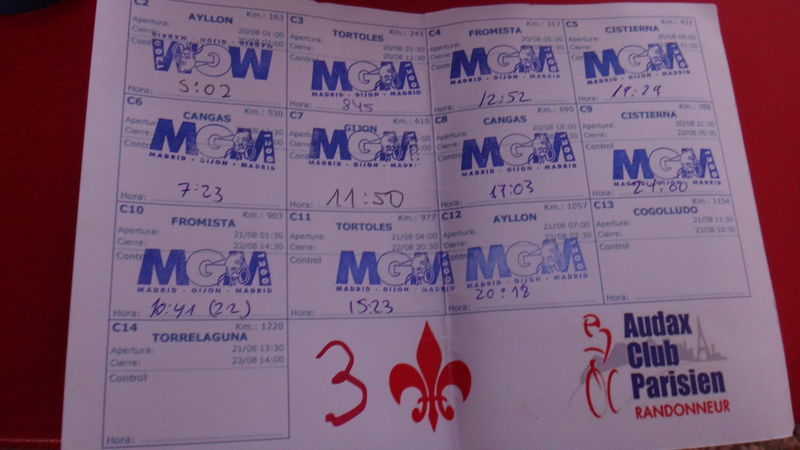 C2 AYLLON Km.: 163
Apertura: 20/08 01:00
Cierre:
Control
MGM 1200
MADRID - GIJON - MADRID
Hora: 5:02
C3 Km.: 243
TORTOLES
Apertura: 20/08 03:30
Cierre: 20/08 12:30
MGM 1200
MADRID - GIJON - MADRID
Hora: 845
C4 Km.: 317
FROMISTA
Apertura: 20/08 05:30
Cierre:
MGM 1200
MADRID - GIJON - MADRID
Hora: 12:52
C5
CISTIERNA
Apertura:
Cierre:
MGM 1200
MADRID - GIJON - MADRID
Hora:
C6 Km.: 530
CANGAS
Apertura:
Cierre:
Control
MGM 1200
MADRID - GIJON - MADRID
Hora: 7:23
C7 Km.: 610
GIJON
Apertura:
Cierre:
MGM
MADRID - GIJON - MADRID
Hora: 11:50
C8 Km.: 690
CANGAS
Apertura: 20/08 18:00
Cierre:
MGM 1200
MADRID - GIJON - MADRID
Hora: 17:03
C9 Km.: 788
CISTIERNA
Apertura: 20/08 21:30
Cierre: 22/08 05:30
Control
MGM 1200
MADRID - GIJON - MADRID
Hora: 24:00
C10 Km.: 903
FROMISTA
Apertura: 21/08 01:30
Cierre: 22/08 14:30
Control
MGM 1200
MADRID - GIJON - MADRID
Hora: 10:41 (22)
C11 Km.: 977
TORTOLES
Apertura: 21/08 04:00
Cierre: 22/08 20:30
Control
MGM 1200
MADRID - GIJON - MADRID
Hora: 15:23
C12 Km.: 1057
AYLLON
Apertura: 21/08 07:00
Cierre: 23/08 02:30
Control
MGM 1200
MADRID - GIJON - MADRID
Hora: 20:18
C13 Km.: 1154
COGOLLUDO
Apertura: 21/08 11:30
Cierre: 23/08 10:30
Control
Hora:
C14 Km.: 1220
TORRELAGUNA
Apertura: 21/08 13:30
Cierre: 23/08 14:00
Control
Hora:
3
Audax
Club
Parisien
RANDONNEUR